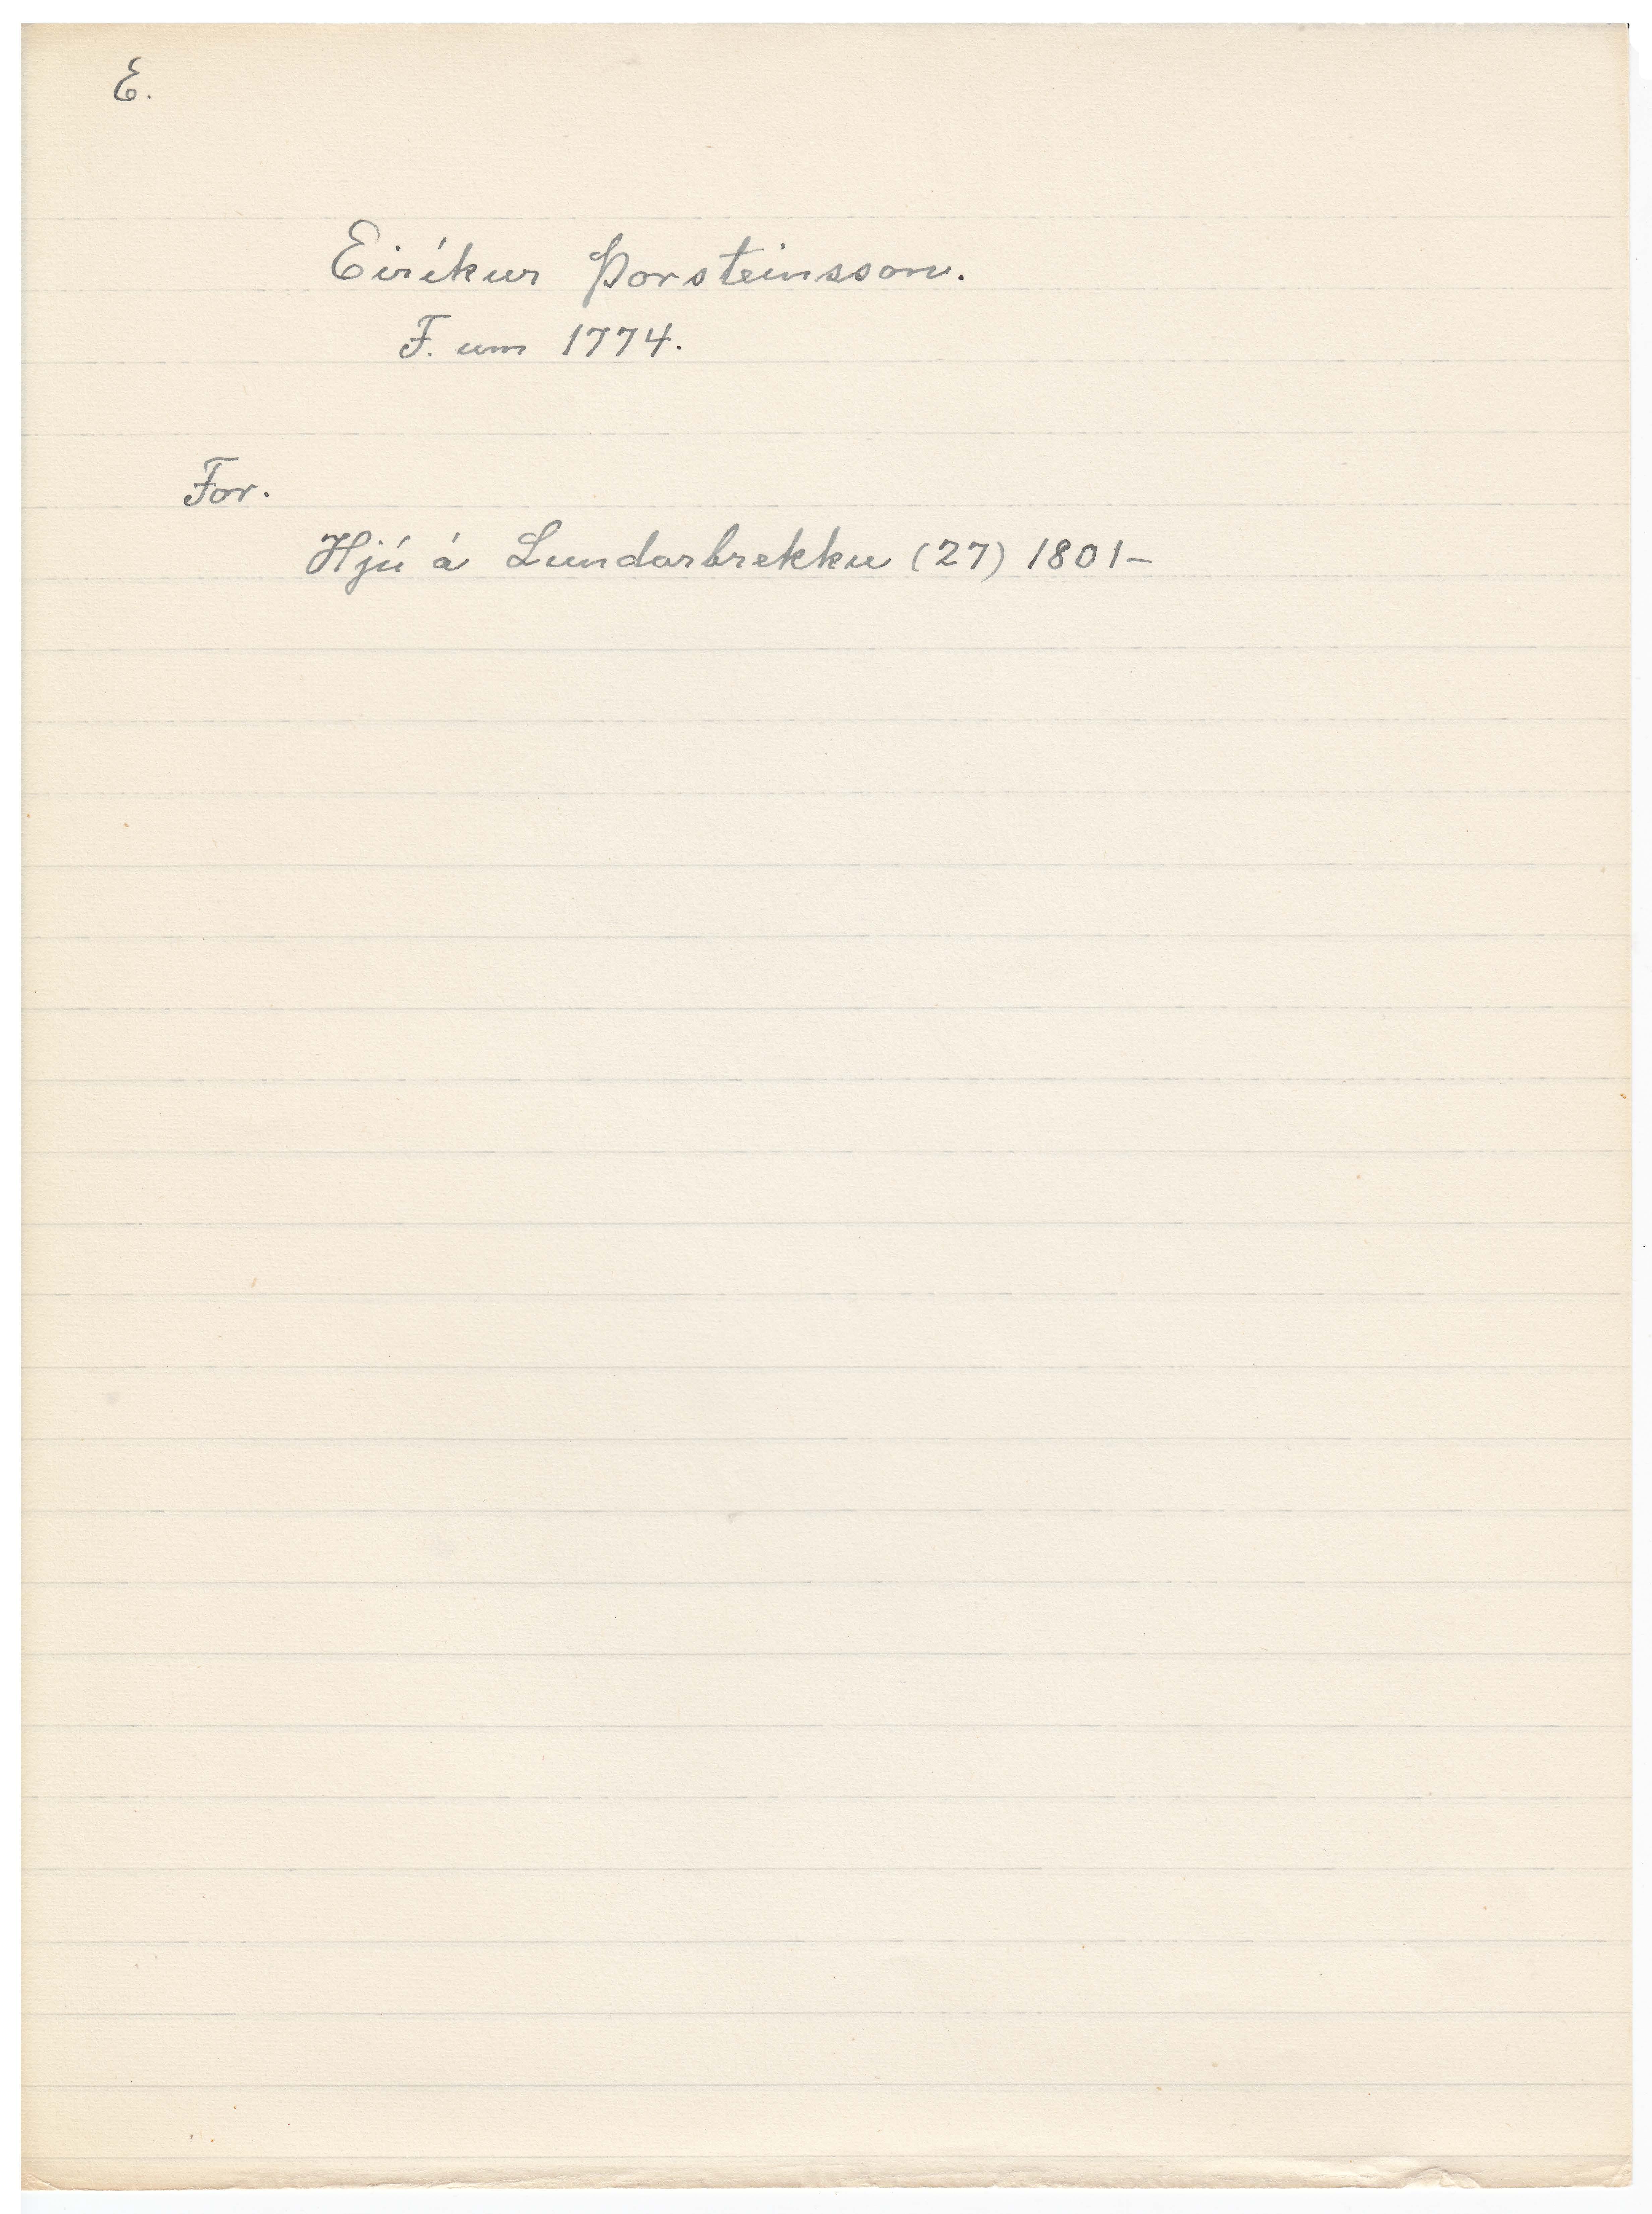 E.
Eiríkur Þorsteinsson.
F. um 1774.
For.
Hjú á Lundarbrekku (27) 1801–